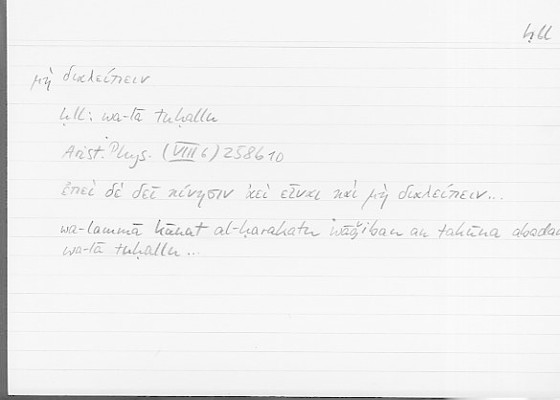 ḫll
μὴ διαλείπειν
ḫll: wa-lā tuḫallu
Arist. Phys. (VIII 6) 258b10
ἐπεὶ δὲ δεῖ κίνησιν ἀεὶ εἶναι καὶ μὴ διαλείπειν...
wa-lammā kānat al-ḥarakatu wāǧiban an takūna abadan
wa-lā tuḫallu...